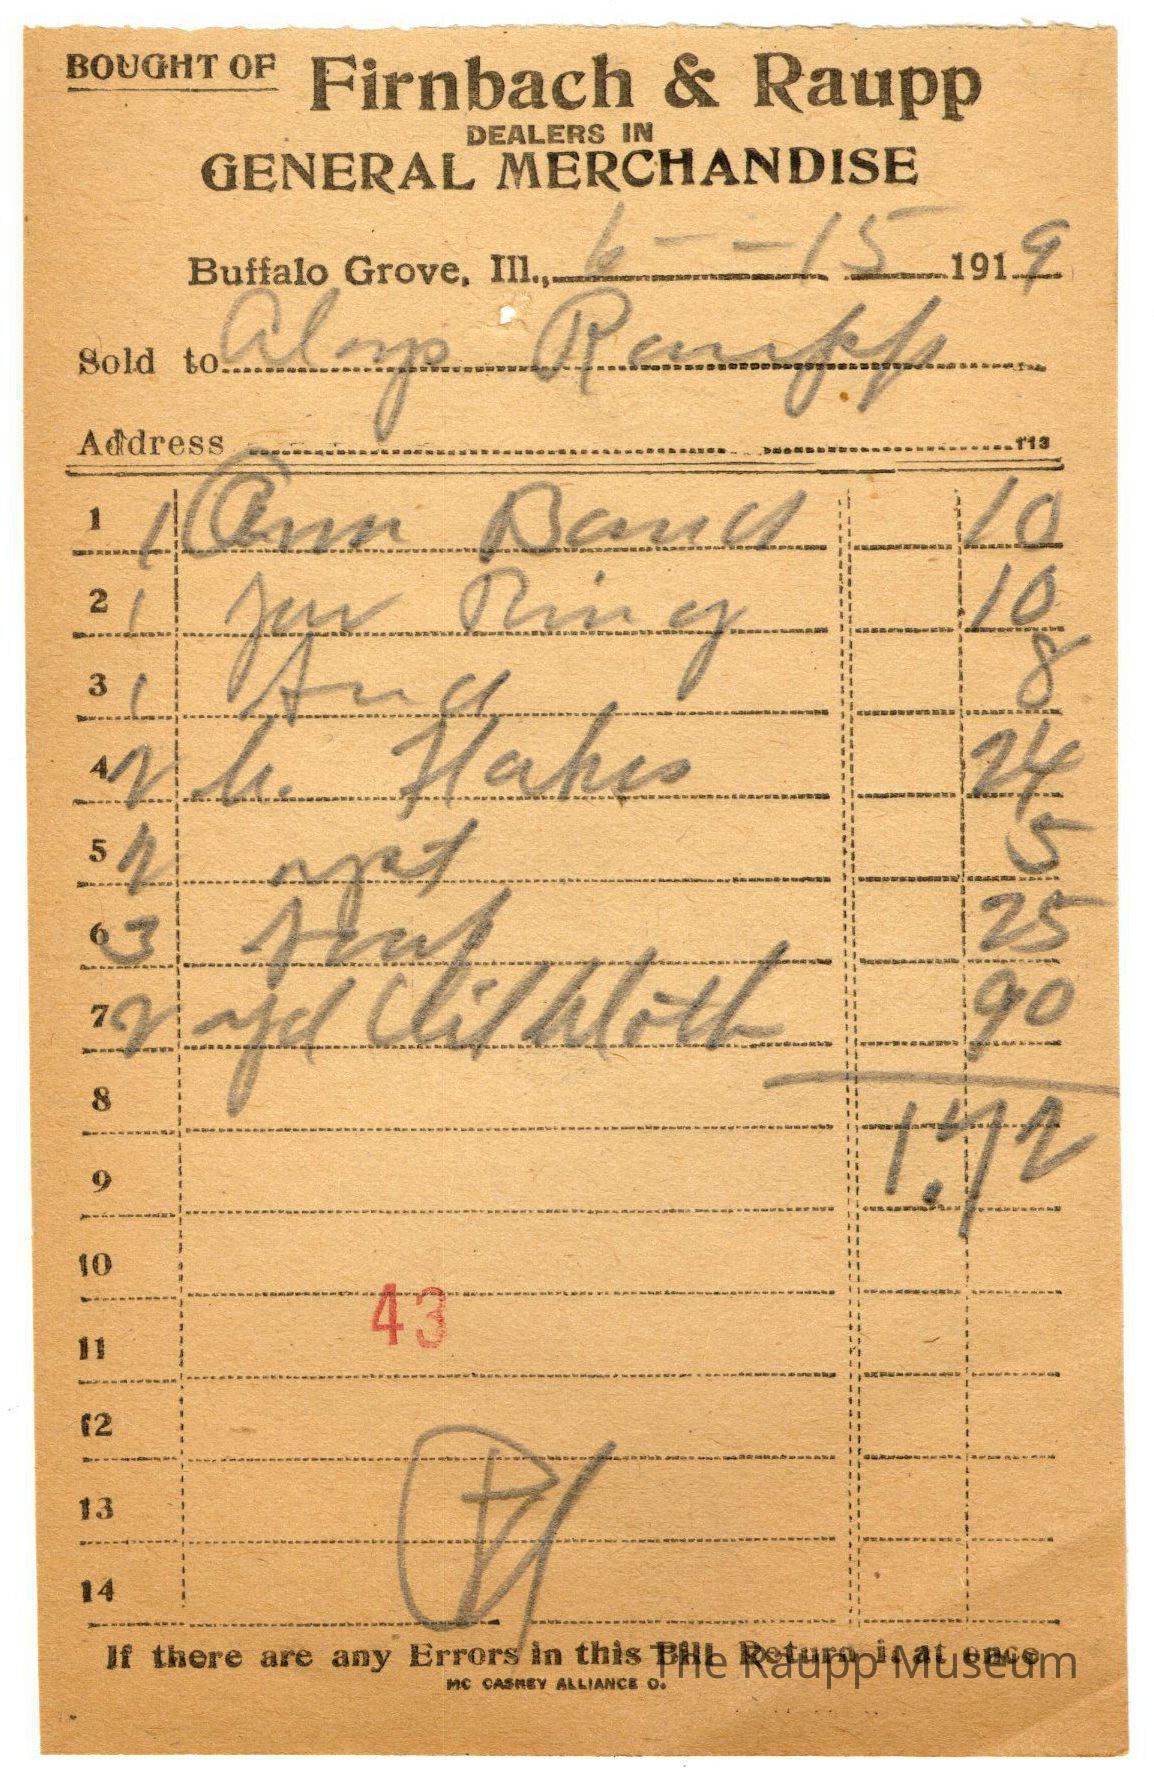 BOUGHT OF Firnbach & Raupp
DEALERS IN
GENERAL MERCHANDISE
Buffalo Grove, Ill., 6 - - 15 1919
Sold to Aloys Raupp
Address
113
1 1 Arm Band 10
2 1 Jar Ring 10
3 1 8
4 2 Flakes 24
5 2 5
6 3 25
7 2 yd Oil Kloth 90
8 1.72
9
10
43
11
12
13
14
If there are any Errors in this Bill Return it at once
MC CASKEY ALLIANCE O.
The Raupp Museum